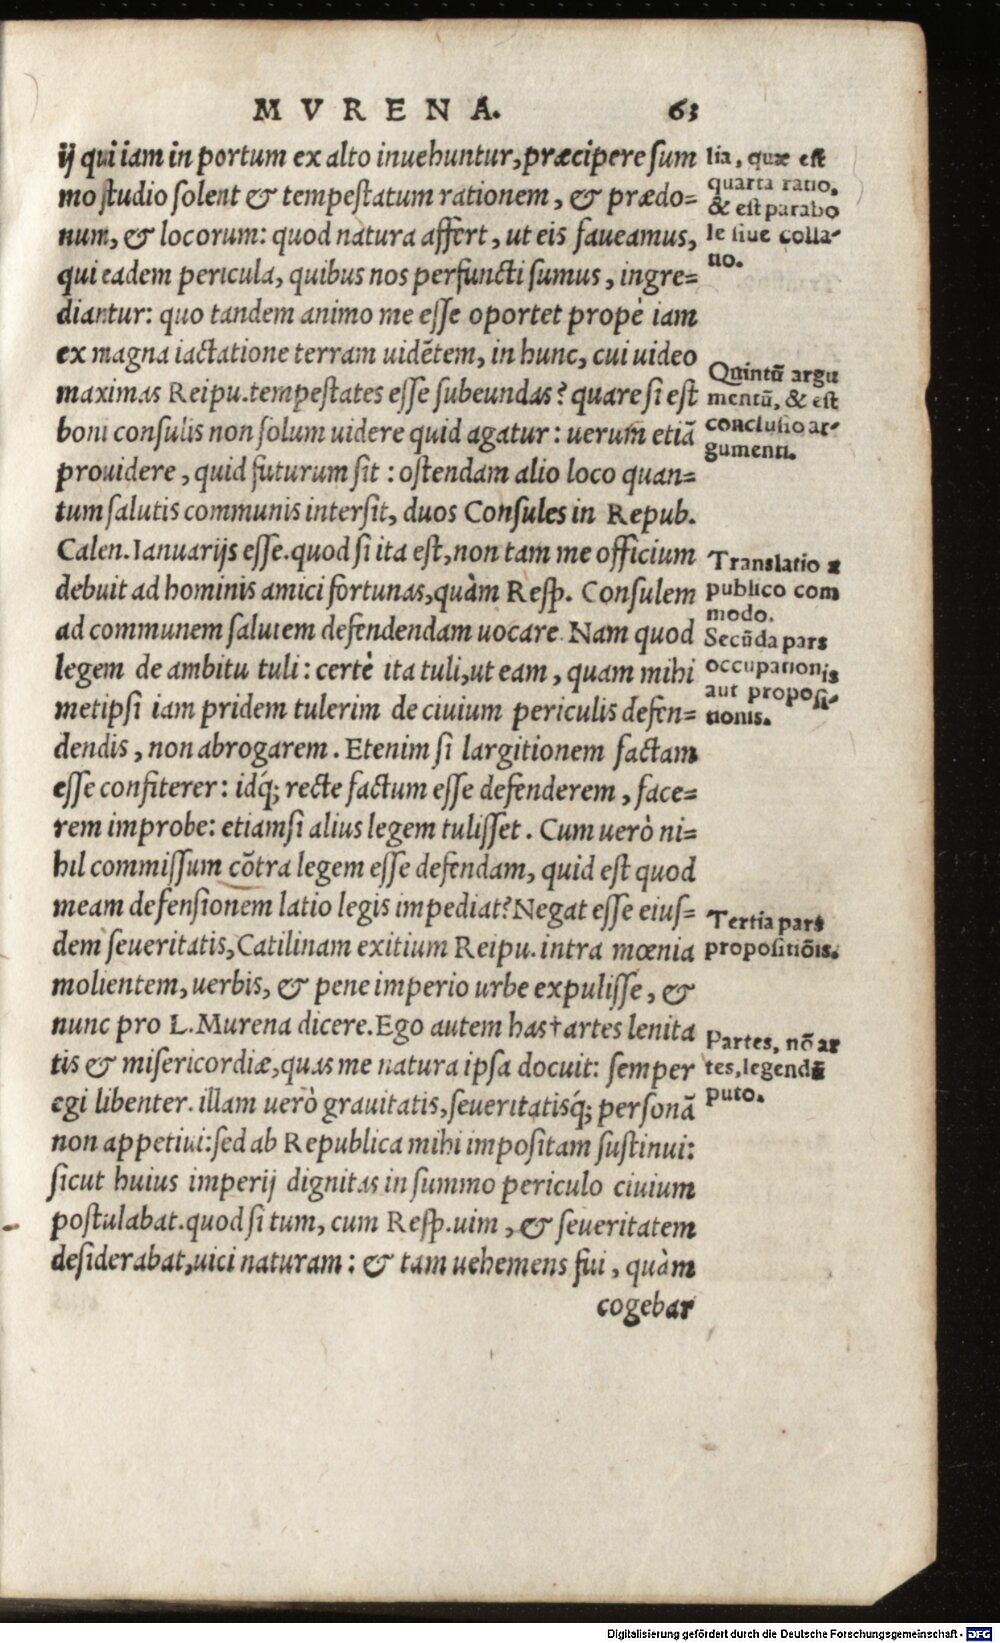 MVRENA. 63
ij qui iam in portum ex alto inuehuntur, præcipere sum
mo studio solent & tempestatum rationem, & prædo=
num, & locorum: quod natura affert, ut eis faueamus,
qui eadem pericula, quibus nos perfuncti sumus, ingre=
diantur: quo tandem animo me esse oportet propè iam
ex magna iactatione terram uidẽtem, in hunc, cui uideo
maximas Reipu. tempestates esse subeundas? quare si est
boni consulis non solum uidere quid agatur: uerum etiã
prouidere, quid futurum sit: ostendam alio loco quan=
tum salutis communis intersit, duos Consules in Repub.
Calen. Ianuarijs esse. quod si ita est, non tam me officium
debuit ad hominis amici fortunas, quàm Resp. Consulem
ad communem salutem defendendam uocare. Nam quod
legem de ambitu tuli: certè ita tuli, ut eam, quam mihi
metipsi iam pridem tulerim de ciuium periculis defen=
dendis, non abrogarem. Etenim si largitionem factam
esse confiterer: idq́; recte factum esse defenderem, face=
rem improbe: etiamsi alius legem tulisset. Cum uerò ni=
hil commissum cõtra legem esse defendam, quid est quod
meam defensionem latio legis impediat? Negat esse eius=
dem seueritatis, Catilinam exitium Reipu. intra mœnia
molientem, uerbis, & pene imperio urbe expulisse, &
nunc pro L. Murena dicere. Ego autem has † artes lenita
tis & misericordiæ, quas me natura ipsa docuit: semper
egi libenter. illam uerò grauitatis, seueritatisq́; personã
non appetiui: sed ab Republica mihi impositam sustinui:
sicut huius imperij dignitas in summo periculo ciuium
postulabat. quod si tum, cum Resp. uim, & seueritatem
desiderabat, uici naturam: & tam uehemens fui, quàm
cogebar
lia, quæ est
quarta ratio,
& est parabo
le siue colla-
tio.
Quintũ argu
mentũ, & est
conclusio ar-
gumenti.
Translatio a
publico com
modo.
Secũda pars
occupationis
aut proposi-
tionis.
Tertia pars
propositiõis.
Partes, nõ ar
tes, legendũ
puto.
Digitalisierung gefördert durch die Deutsche Forschungsgemeinschaft - DFG